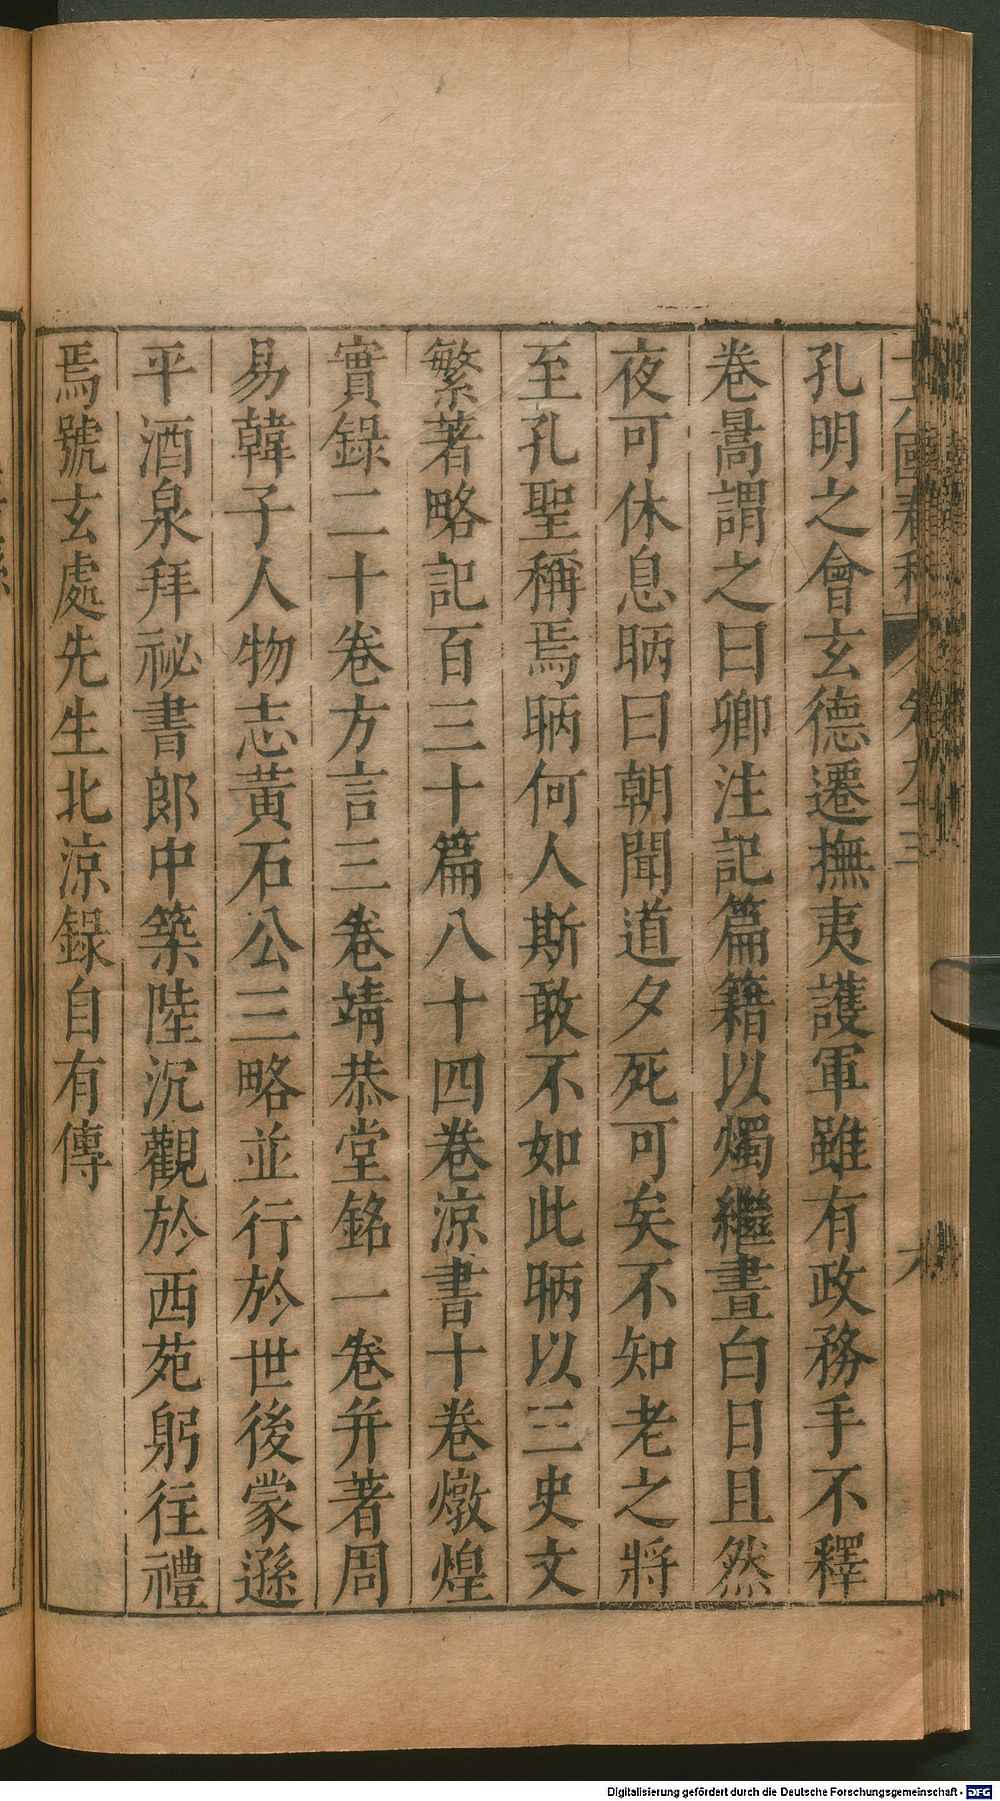 孔明之會玄德遷撫夷護軍雖有政務手不釋
卷暠謂之曰卿注記篇籍以燭繼晝白日且然
夜可休息昞曰朝聞道夕死可矣不知老之將
至孔聖稱焉昞何人斯敢不如此昞以三史文
繁著略記百三十篇八十四卷涼書十卷燉煌
實錄二十卷方言三卷靖恭堂銘一卷并著周
易韓子人物志黃石公三略並行於世後蒙遜
平酒泉拜祕書郎中築陸沉觀於西苑躬往禮
焉號玄處先生北涼錄自有傳
Digitalisierung gefördert durch die Deutsche Forschungsgemeinschaft - DFG